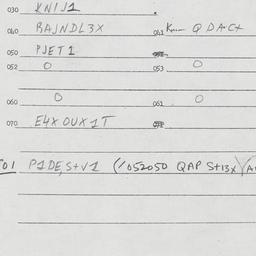 030 KNIJ1
040 RAJNDL3X 041 K— Q DACt
050 PJET1
052 O 053 O
060 O 061 O
070 E4X0UX1T
701 P1DE,S+V1 (1052050 QAP St13X